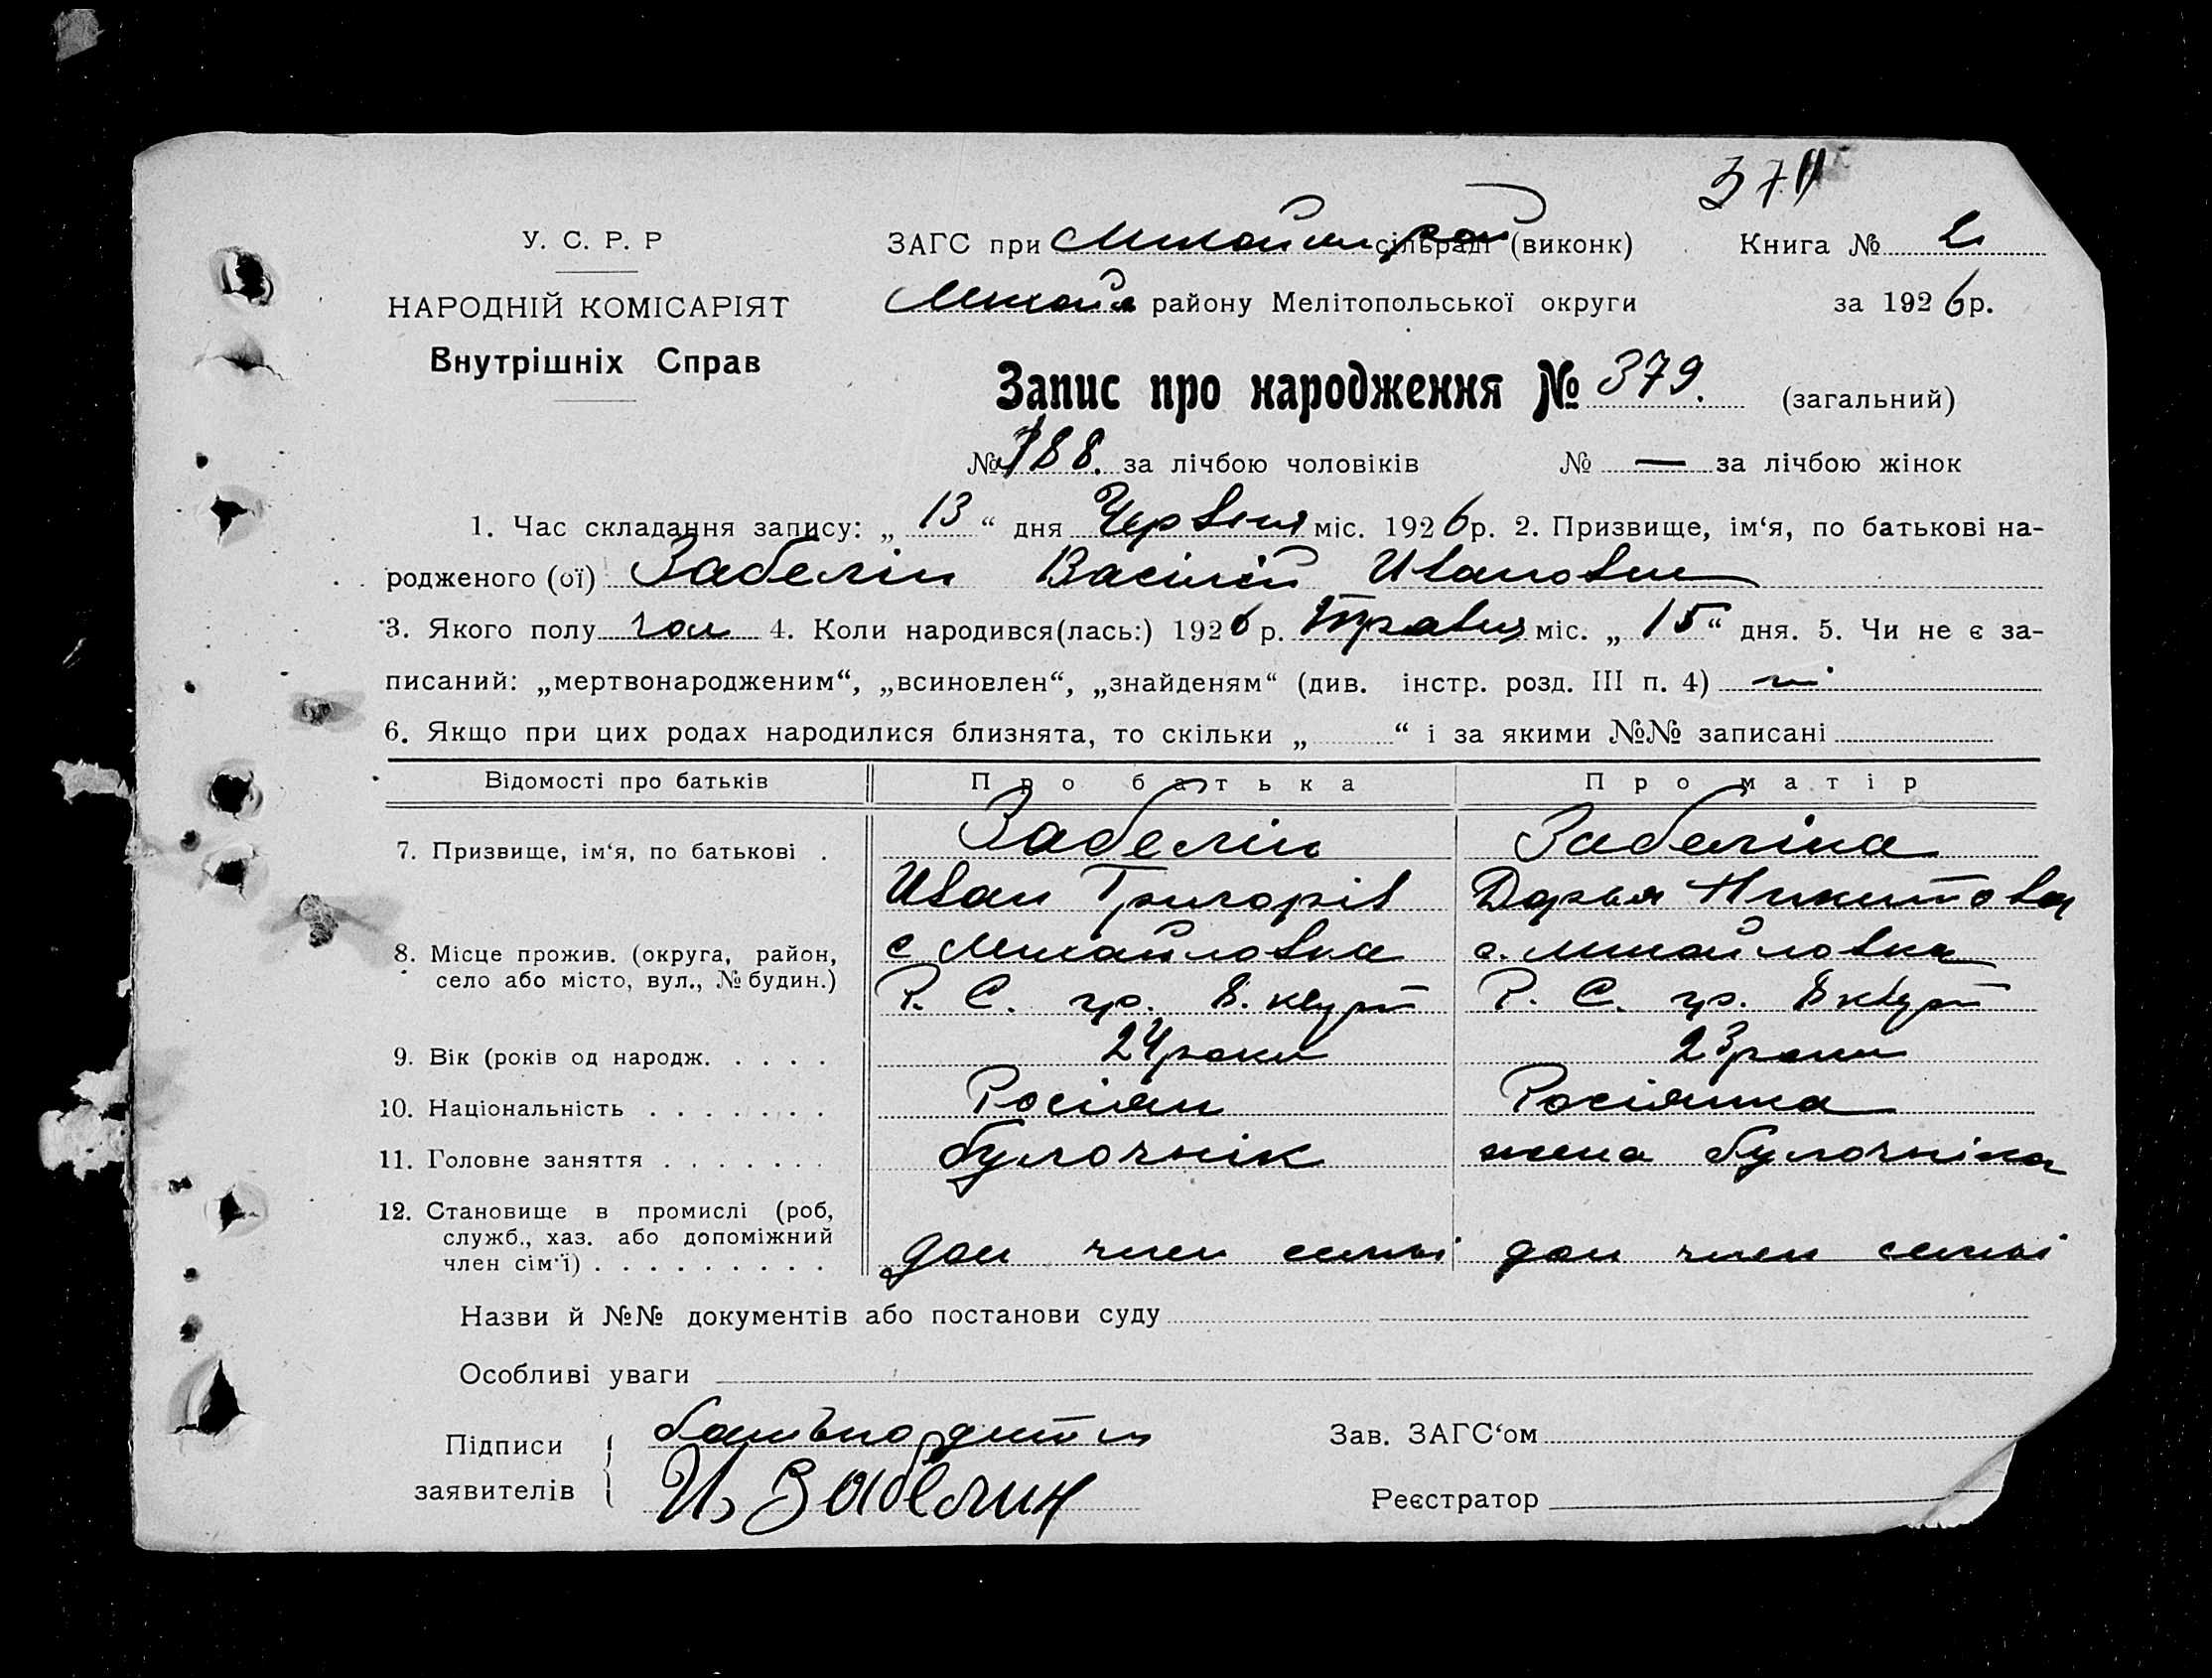 37
У. С. Р. Р
ЗАГС при Михайлів сільраді рай (виконк) Книга № 2
НАРОДНІЙ КОМІСАРІЯТ
Михайл району Мелітопольської округи за 1926 р.
Внутрішніх Справ
Запис про народження № 379. (загальний)
№ 188. за лічбою чоловіків № — за лічбою жінок
1. Час складання запису: „ 13 “ дня Червня міс. 1926 р. 2. Призвище, ім‘я, по батькові на-
родженого (ої) Забелін Васілій Иванович
3. Якого полу чол 4. Коли народився(лась:) 1926 р. Травня міс. „ 15 “ дня. 5. Чи не є за-
писаний: „мертвонародженим“, „всиновлен“, „знайденям“ (див. інстр. розд. III п. 4) ні
6. Якщо при цих родах народилися близнята, то скільки „ “ і за якими №№ записані
Відомості про батьків Про батька Про матір
7. Призвище, ім‘я, по батькові . Забелін Забеліна
Иван Григорів Дарья Никитова
8. Місце прожив. (округа, район, с Михайловка с. Михайловка
село або місто, вул., № будин.) Р. С. гр. 8. кварт Р. С. гр. 8 кварт
9. Вік (років од народж. . . . . 24 роки 23 роки
10. Національність . . . . . . . Росіян Росіянка
11. Головне заняття . . . . . . . булочнік жена булочніка
12. Становище в промислі (роб,
служб., хаз. або допоміжний
член сім‘ї) . . . . . . . . . доп член семьі доп член семьі
Назви й №№ документів або постанови суду
Особливі уваги
Підписи батько дитини Зав. ЗАГС‘ом
заявителів И Забелин Реєстратор